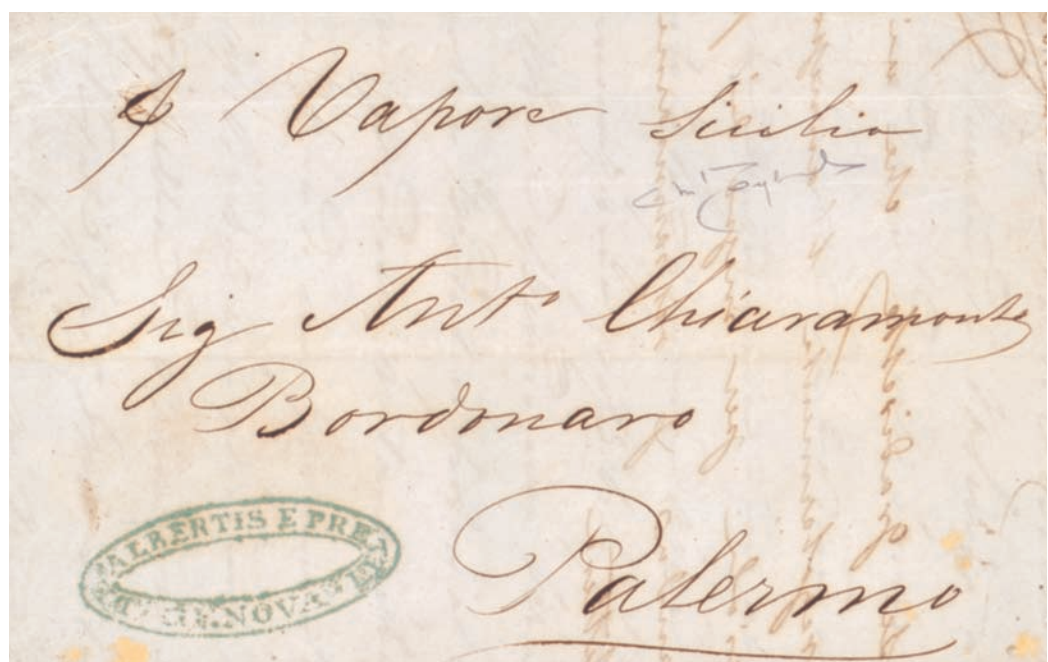 p Vapore Sicilia
Sig Anto Chiaramonte
Bordonaro
Palermo
ALBERTIS E PRE
GENOVA